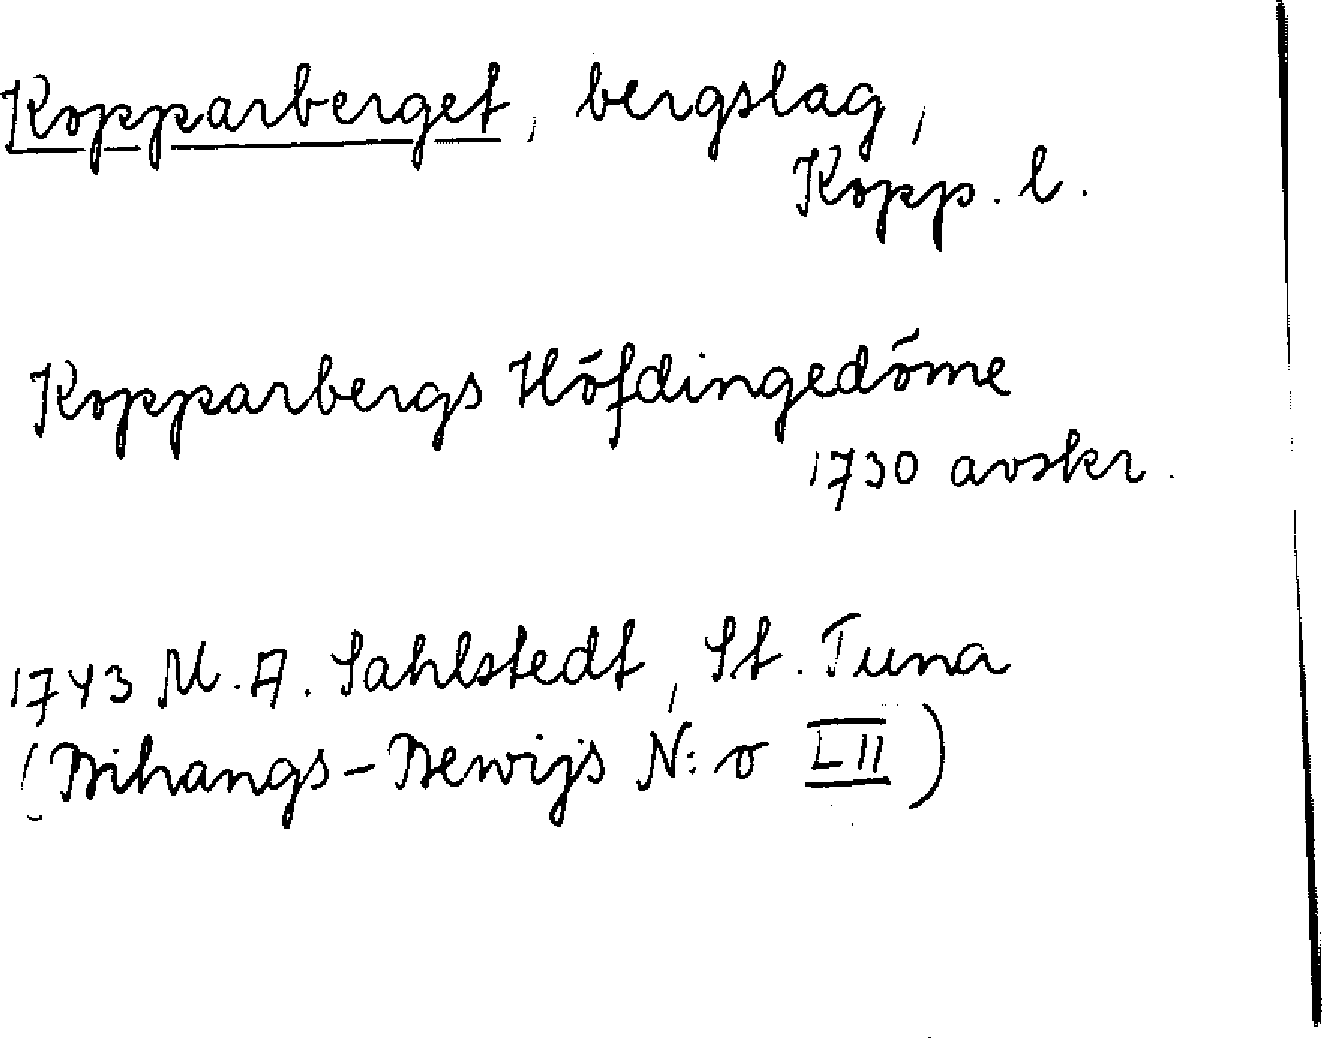 Kopparberget, bergslag,
Kopp. l.
Kopparbergs Höfdingedöme
1730 avskr.
1743 M. A. Sahlstedt, St. Tuna
(Bihangs-Bewijs N:o LII)